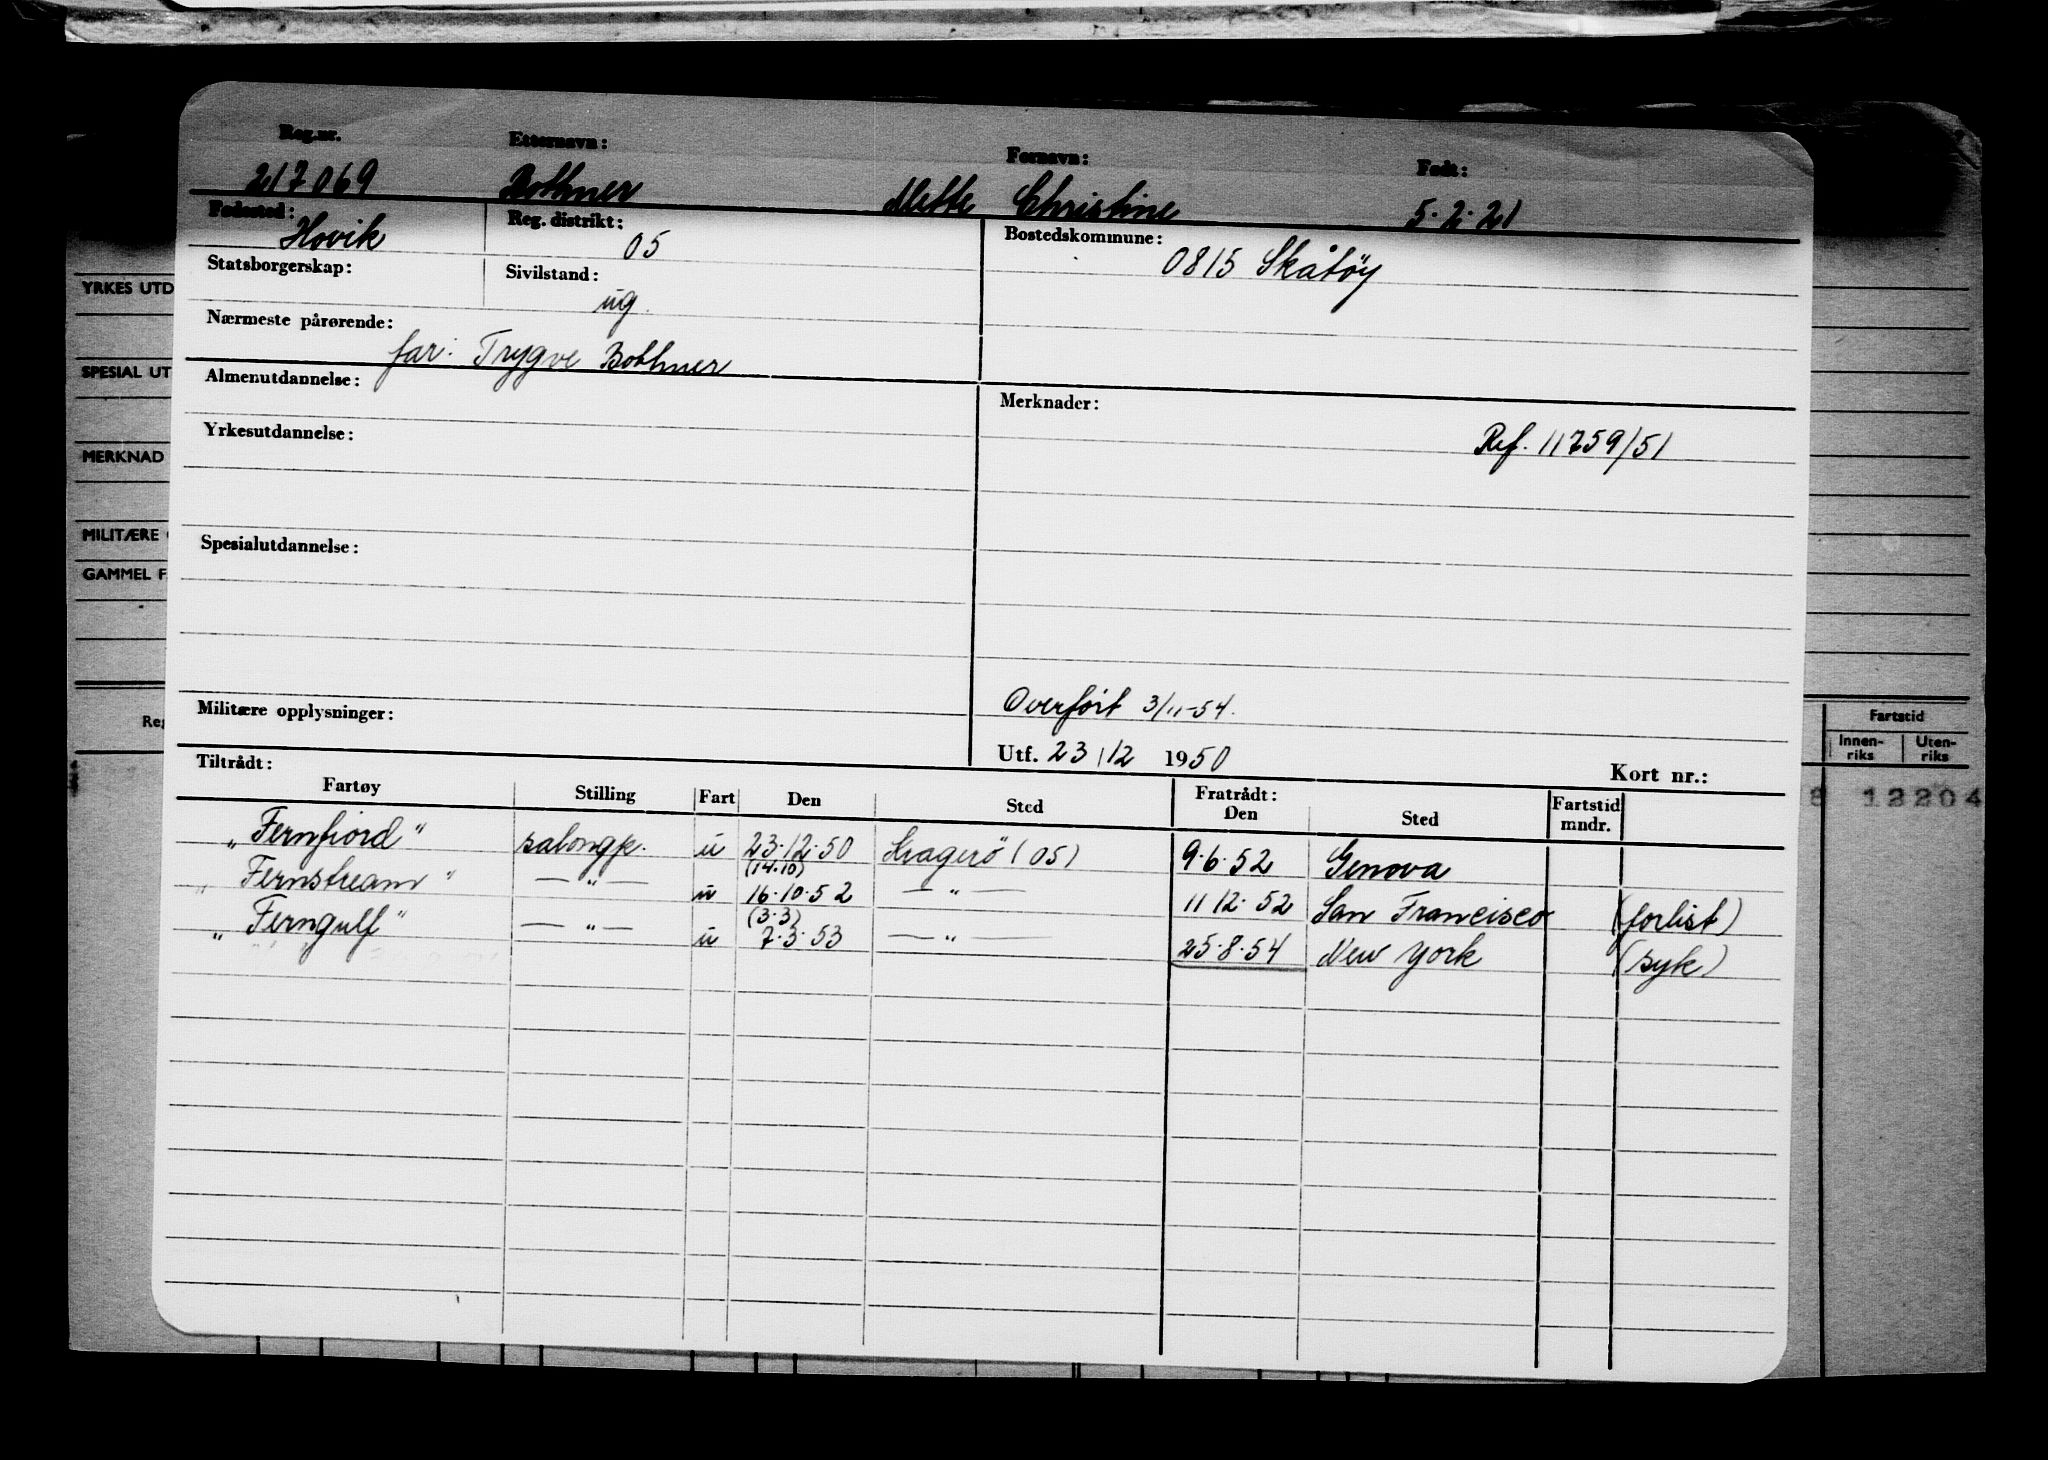 Reg.nr. Etternavn: Fornavn: Født:
217069 Bothner Mette Christine 5.2.21
Fødested: Høvik Reg. distrikt: 05 Bostedskommune: 0815 Skåtøy
Statsborgerskap: Sivilstand: ug.
Nærmeste pårørende: far: Trygve Bothner
Almenutdannelse: Merknader:
Yrkesutdannelse: Ref. 11759/51
Spesialutdannelse:
Militære opplysninger: Overført 3/11-54.
Utf. 23/12 1950 Kort nr.:
Tiltrådt: Fratrådt:
Fartøy Stilling Fart Den Sted Den Sted Fartstid mndr.
„Fernfiord" salongp. u 23.12.50 Kragerö (05) 9.6.52 Genova
(14.10)
„Fernstream" —"— u 16.10.52 —"— 11 12.52 San Francisco (forlist)
(3.3)
„Ferngulf" —"— u 7.3.53 —" 25.8.54 New York (syk)
YRKES UTD
SPESIAL UT
MERKNAD
MILITÆRE
GAMMEL F
Reg
Fartstid
Innen-
riks
Uten-
riks
8 12204